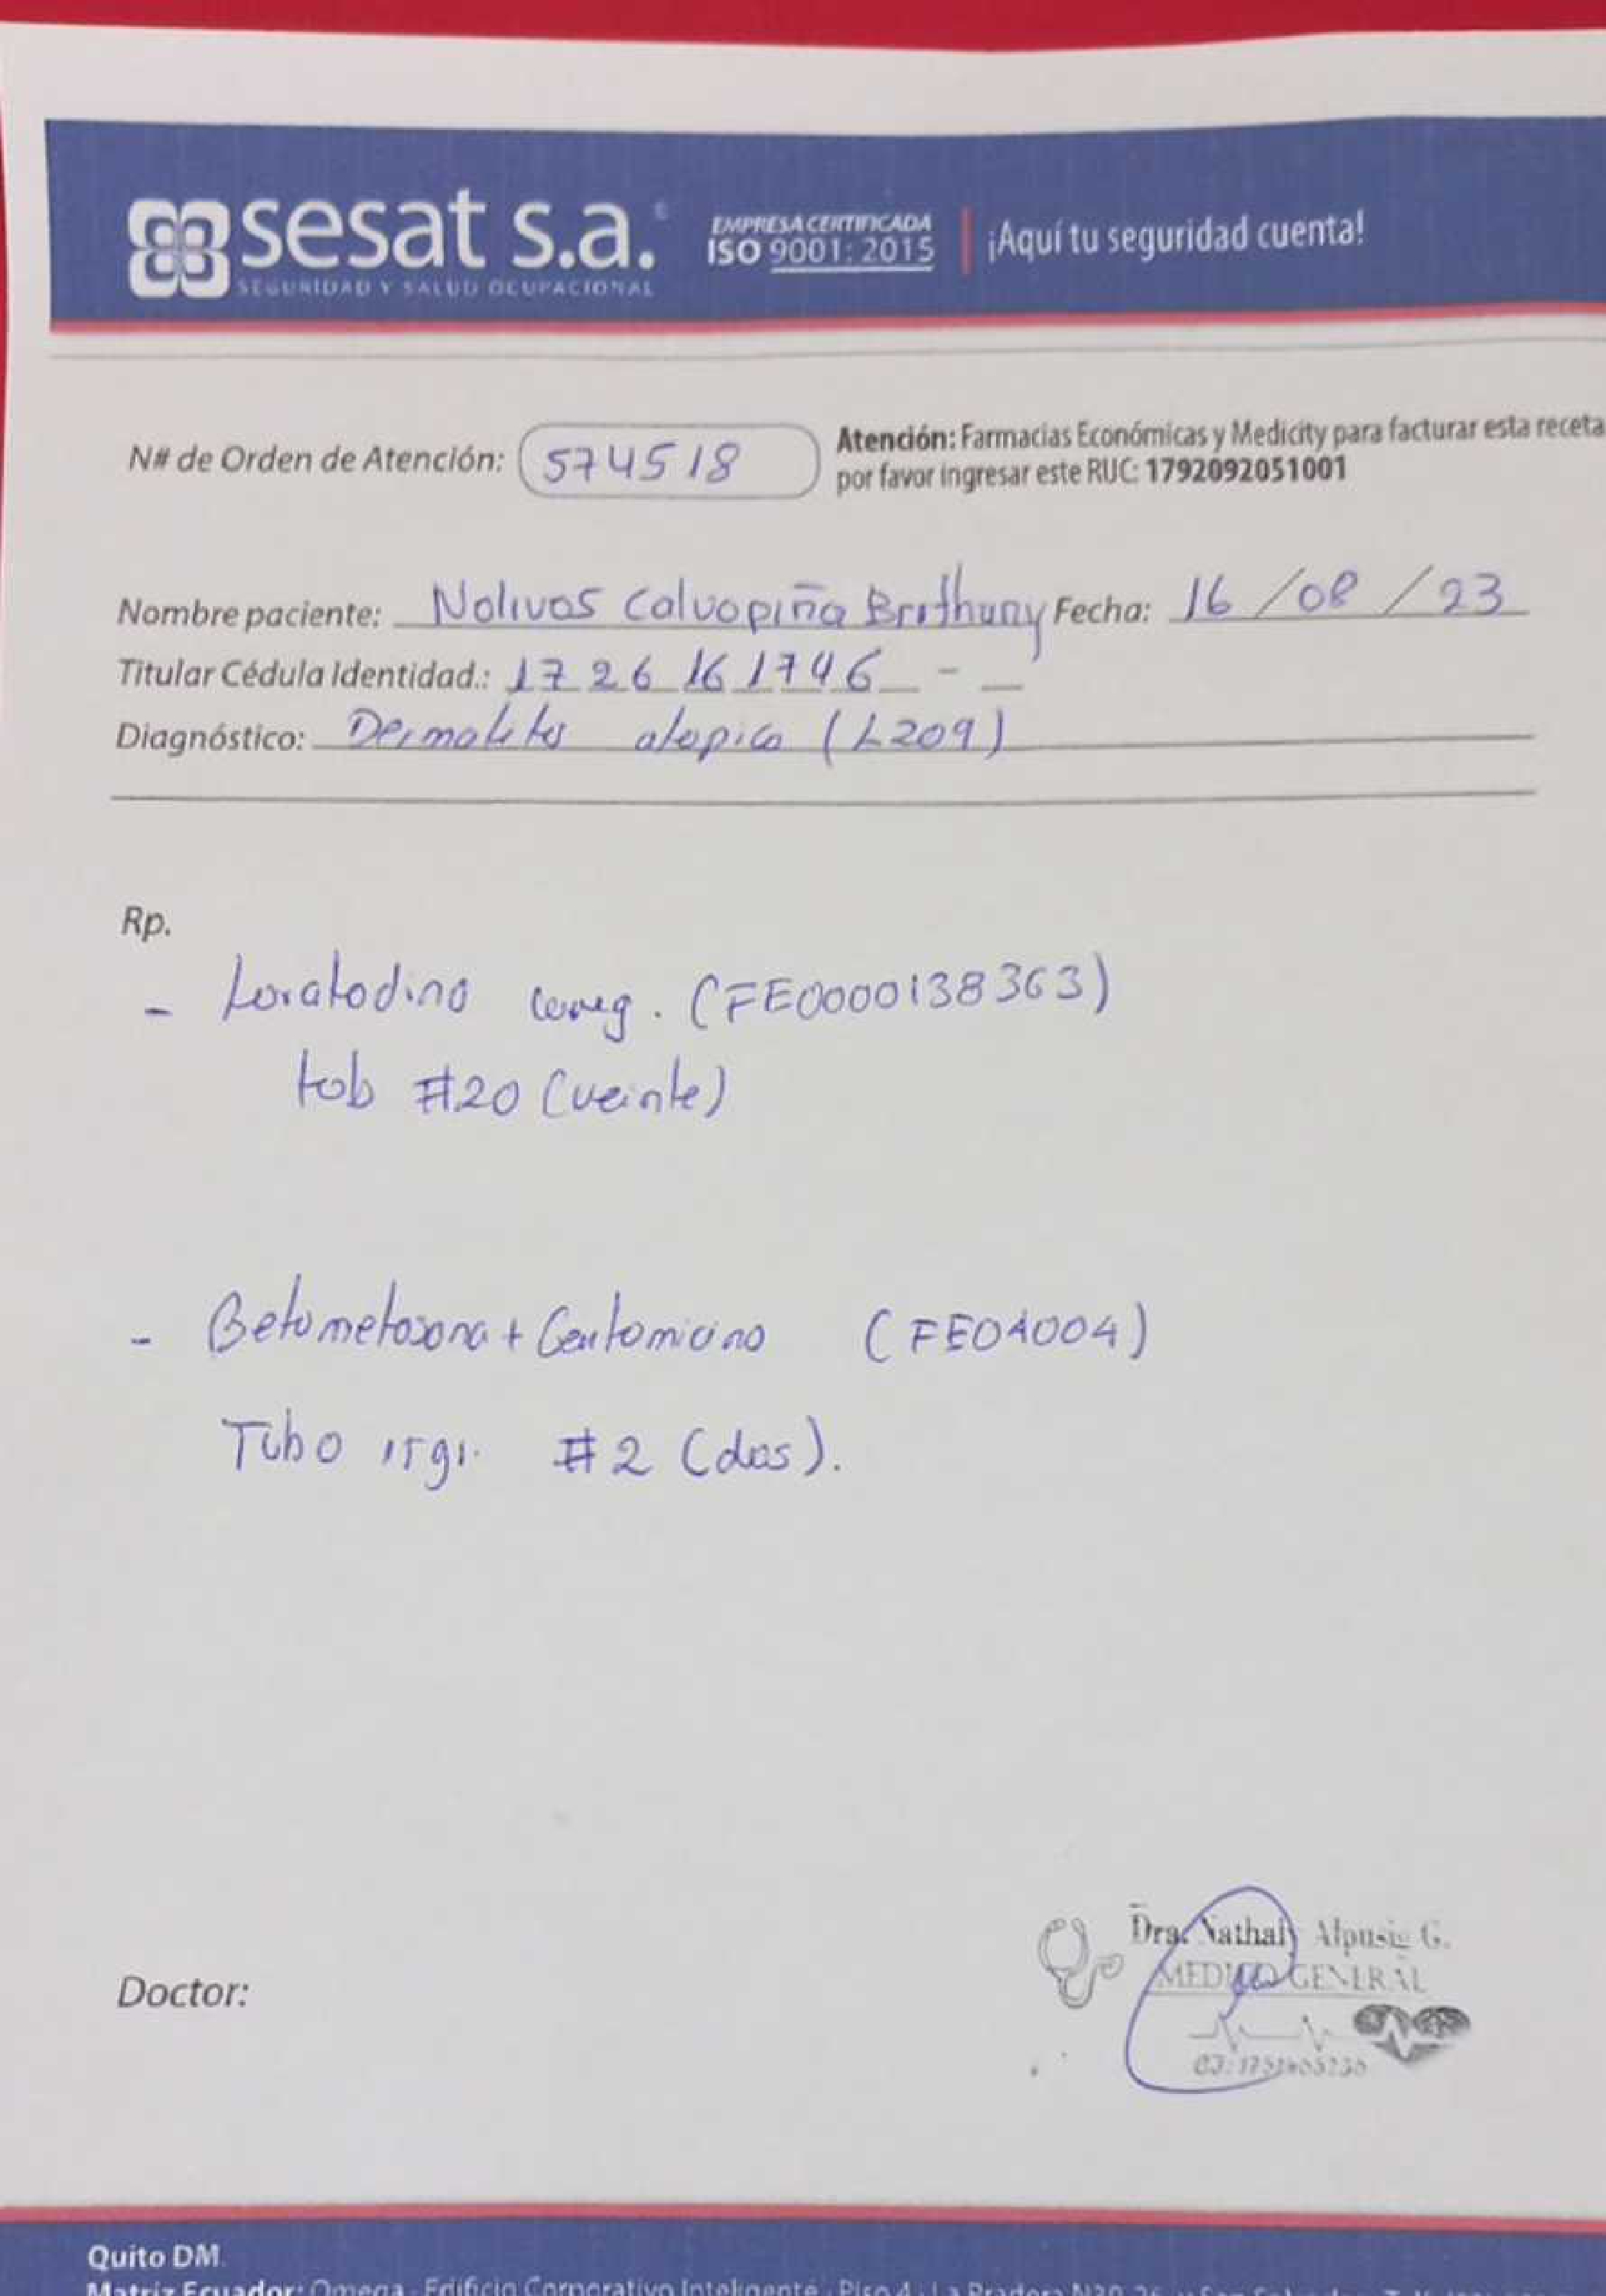 sesat s.a.
SEGURIDAD Y SALUD OCUPACIONAL
EMPRESA CERTIFICADA
ISO 9001: 2015
¡Aquí tu seguridad cuenta!
N# de Orden de Atención: 574518
Atención: Farmacias Económicas y Medicity para facturar esta receta
por favor ingresar este RUC: 1792092051001
Nombre paciente: Nolivos Calvopiña Brithany Fecha: 16 / 08 / 23
Titular Cédula Identidad.: 1726161746 -
Diagnóstico: Dermatitis atopica (L209)
Rp.
- Loratadina (FE0000138363)
tab #20 (veinte)
- Betametasona + Gentamicina (FE04004)
Tubo 15gr. #2 (dos).
Dra. Nathaly Alpusig G.
MEDICO GENERAL
Doctor:
Quito DM.
Matriz Ecuador: Omega - Edificio Corporativo Inteligente - Piso 4 - La Pradera N30-26 y San Salvador